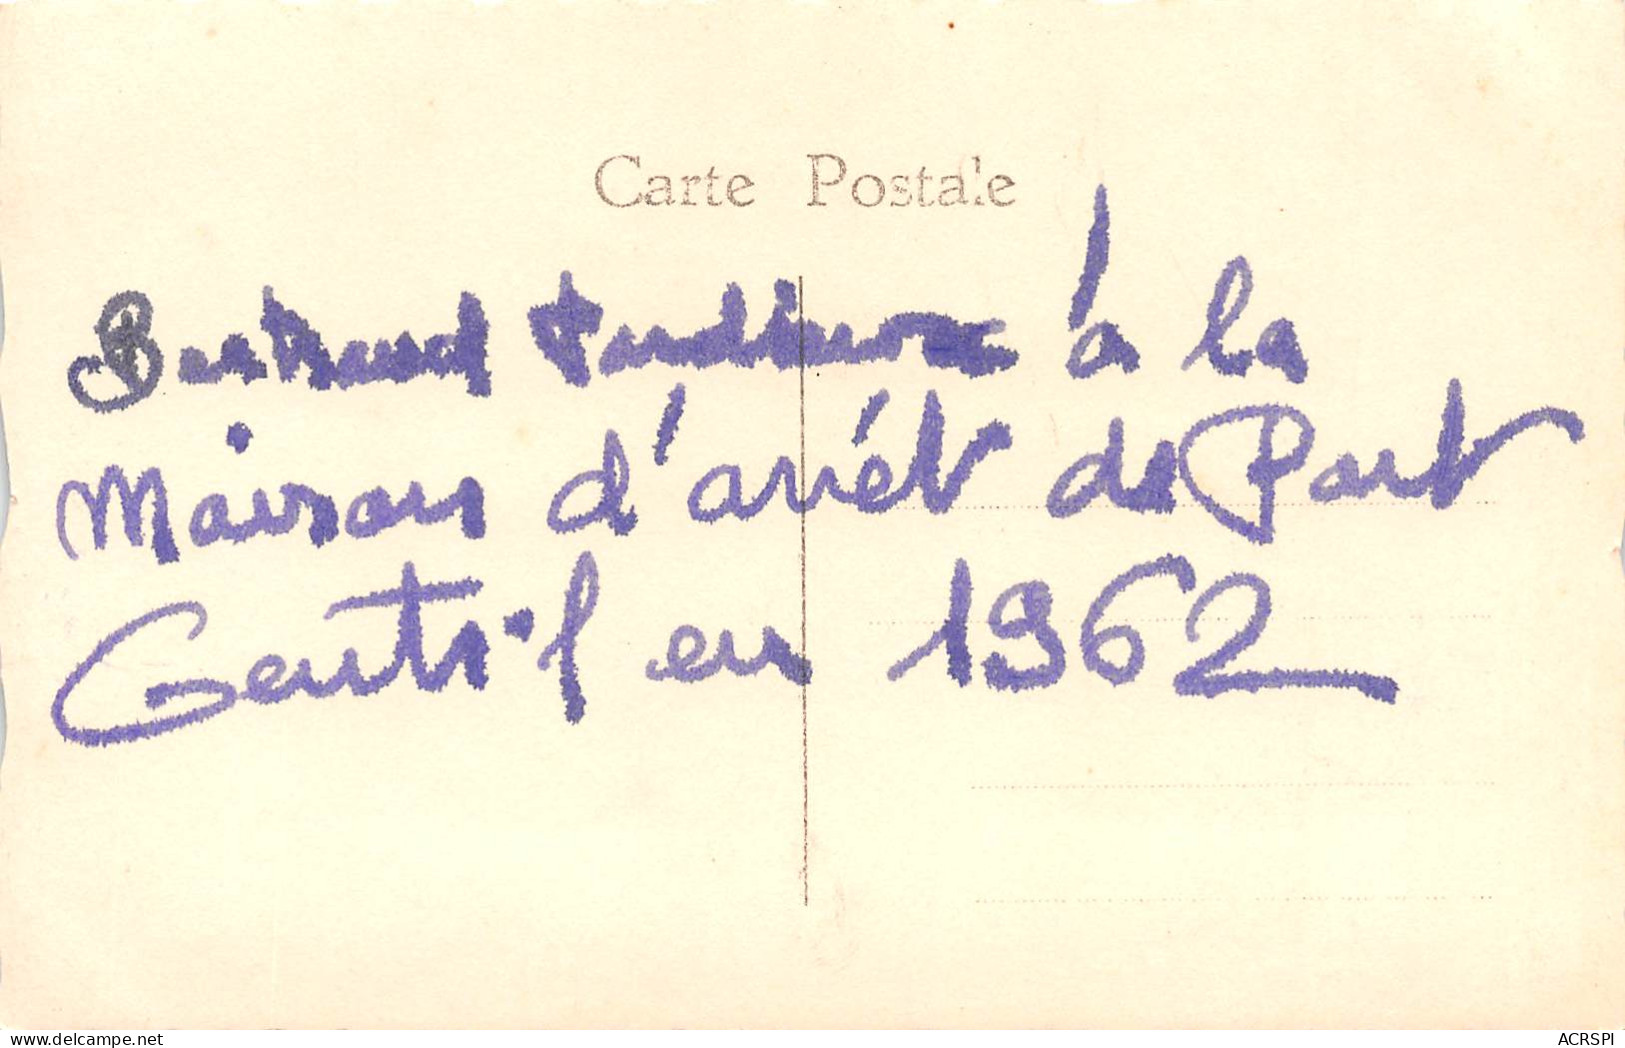 Carte Postale
Bertrand à la
Maison d'arrêt de Port
Gentil en 1962
ACRSPI